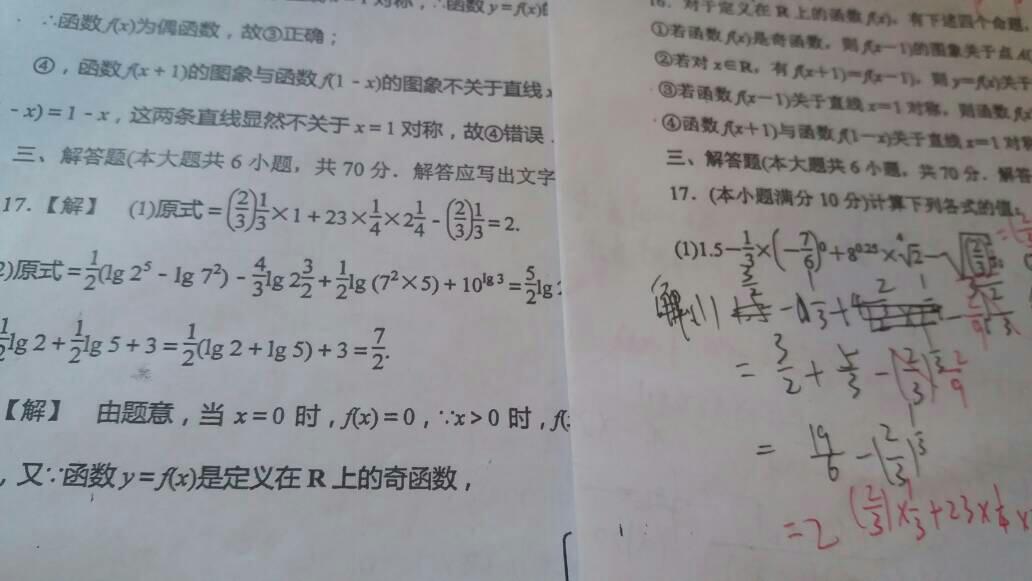 ∴函数 f(x)为偶函数，故③正确；
④，函数 f(x＋1)的图象与函数 f(1－x)的图象不关于直线
－x)＝1－x，这两条直线显然不关于 x＝1 对称，故④错误．
三、解答题(本大题共 6 小题，共 70 分．解答应写出文字
17．【解】 (1)原式＝(2/3)1/3×1＋23×1/4×21/4－(2/3)1/3＝2.
2)原式＝1/2(lg 2⁵－lg 7²)－4/3lg 23/2＋1/2lg (7²×5)＋10^(lg 3)＝5/2lg
1/2lg 2＋1/2lg 5＋3＝1/2(lg 2＋lg 5)＋3＝7/2.
【解】 由题意，当 x＝0 时，f(x)＝0，∵x＞0 时，
，又∵函数 y＝f(x)是定义在 R 上的奇函数，
16．对于定义在 R 上的函数 f(x)，有下述四个命题，
①若函数 f(x)是奇函数，则 f(x－1)的图象关于点 A(
②若对 x∈R，有 f(x＋1)＝f(x－1)，则 y＝f(x)关于
③若函数 f(x－1)关于直线 x＝1 对称，则函数
④函数 f(x＋1)与函数 f(1－x)关于直线 x＝1 对称
三、解答题(本大题共 6 小题，共 70 分．解答
17．(本小题满分 10 分)计算下列各式的值：
(1)1.5－1/3×(－7/6)⁰＋8^0.25×⁴√2－
＝3/2＋5/3－(2/3)^1/3 2/9
＝19/6－(2/3)^1/3
＝2 (2/3)×1/3＋23×1/4×